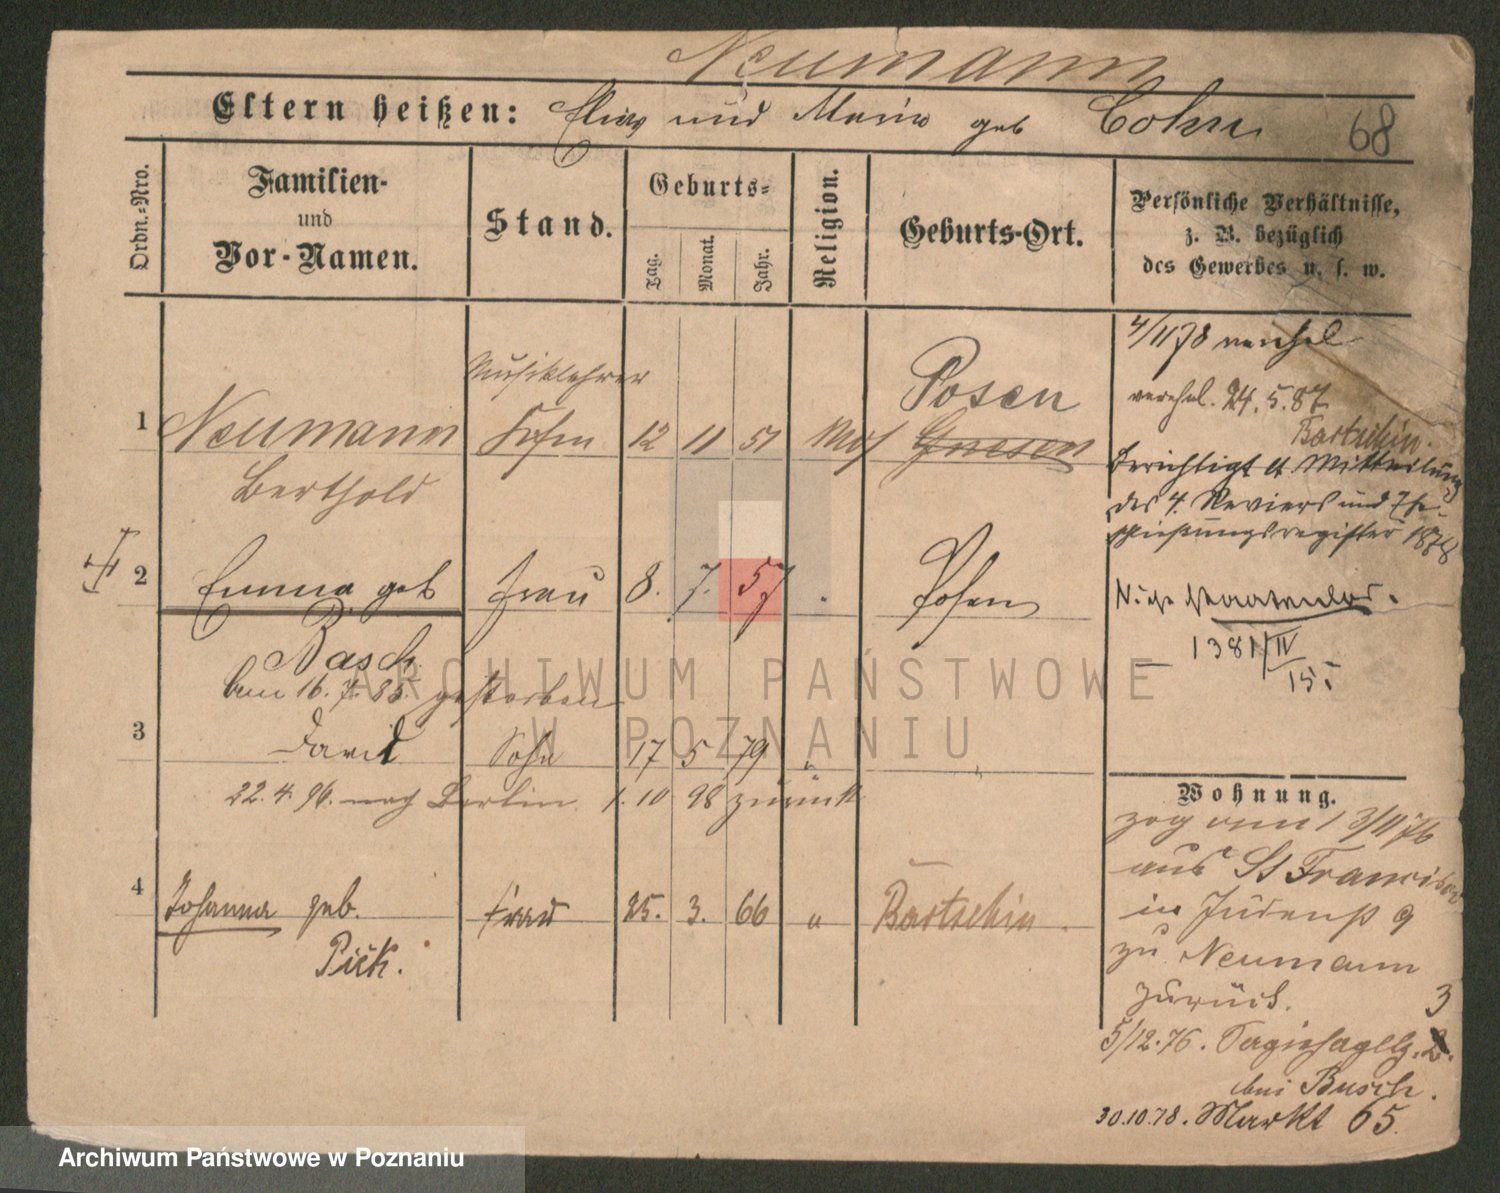 Neumann
Eltern heißen: Elias und Marie geb Cohn 68
Ordn.-Nro.
Familien-
und
Vor-Namen.
Stand.
Geburts-
Tag.
Monat.
Jahr.
Religion.
Geburts-Ort.
Persönliche Verhältnisse,
z. B. bezüglich
des Gewerbes u. s. w.
4/11 78 verehel
verehel. 24. 5. 87
Bartschin.
Musiklehrer
Posen
1 Neumann Sohn 12 11 51 Mos Gnesen
Berthold
Berichtigt lt Mitteilung
des 4. Reviers und Ehe-
schließungsregister 1878
2 Emma geb Frau 8. 7. 57 Posen
Basch
am 16. 7. 85. gestorben
1381/IV
15.
3 David Sohn 17 5 79 "
22. 4. 96. nach Berlin 1. 10 98 zurück
4 Johanna geb. Frau 25. 3. 66 " Bartschin.
Pick.
Wohnung.
zog vom 1 3/11 76
aus St Francisco
in Judenst 9
zu Neumann
zurück.
3
5/12. 76. 2.
bei Busch.
30.10.78. Markt 65.
ARCHIWUM PAŃSTWOWE
W POZNANIU
Archiwum Państwowe w Poznaniu